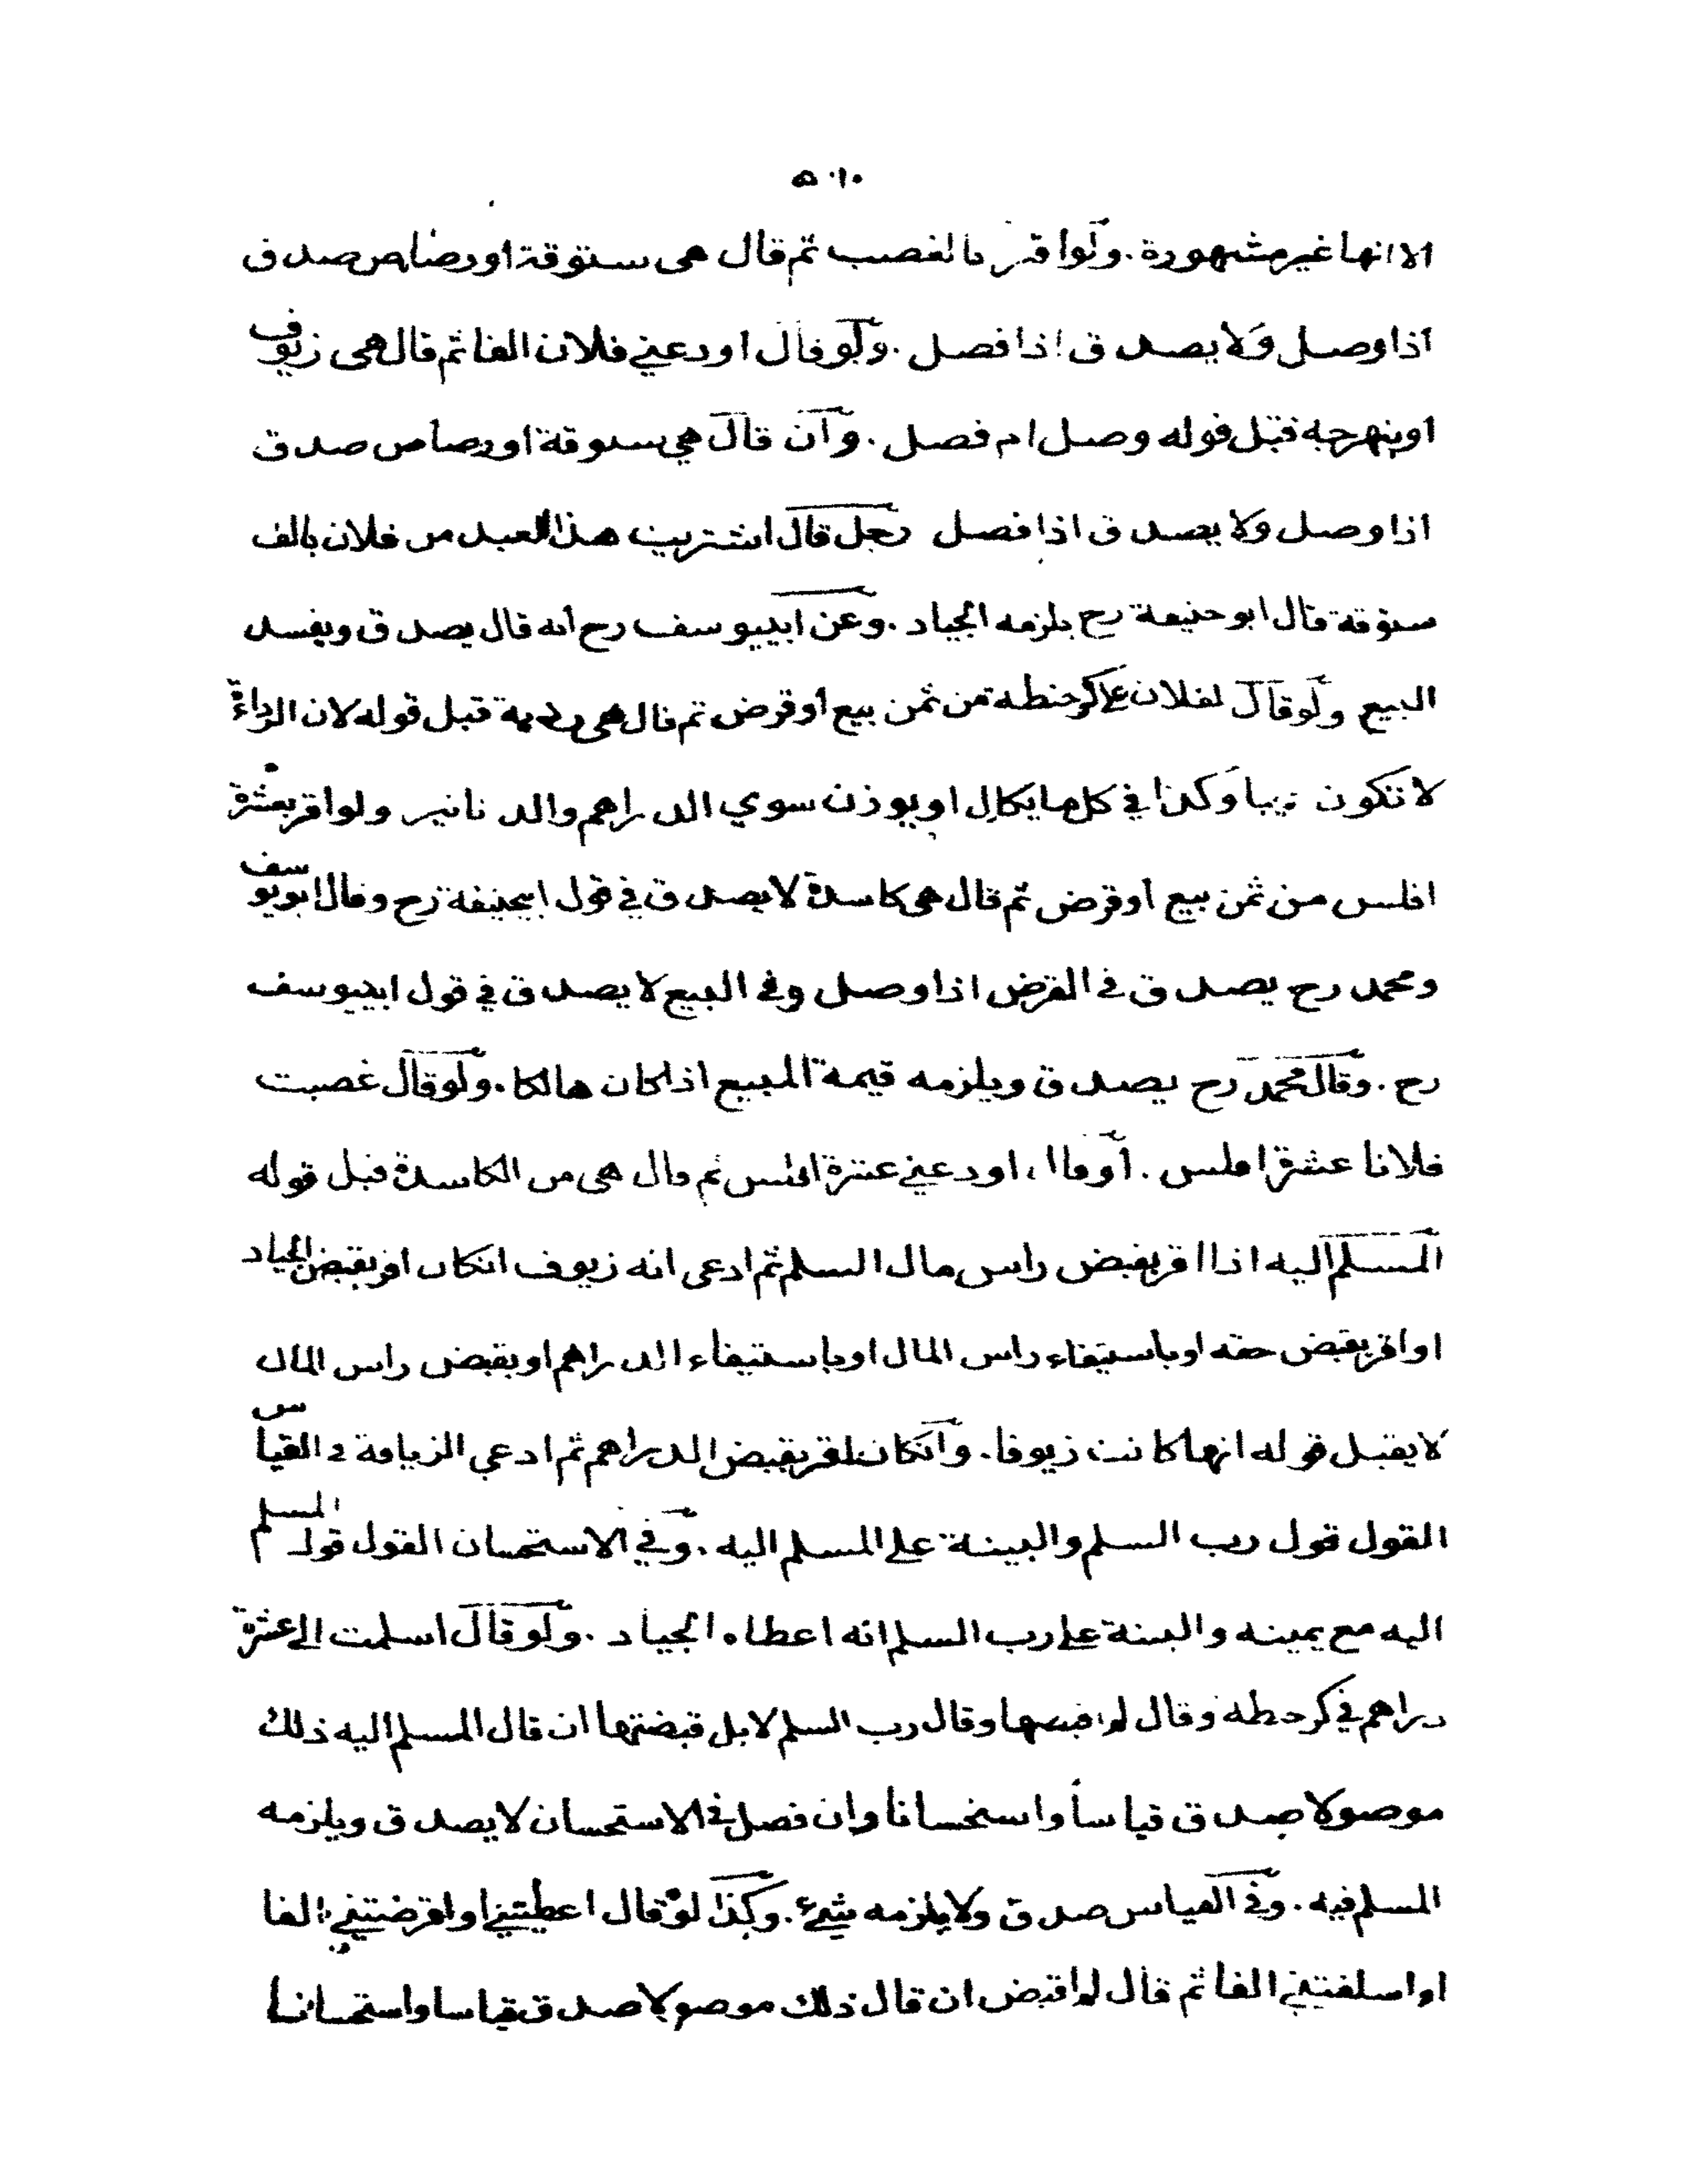 ٥٠١٠
الا انها غير مشهورة . ولو اقر بالغصب ثم قال هى ستوقة او رصاص صدق
اذا وصل ولا يصدق اذا فصل . ولو قال اودعني فلان الفا ثم قال هى زيوف
او بنهرجة قبل قوله وصل ام فصل . وان قال هي ستوقة او رصاص صدق
اذا وصل ولا يصدق اذا فصل رجل قال اشتريت هذا العبد من فلان بالف
ستوقة قال ابو حنيفة رح يلزمه الجياد . وعن ابييوسف رح انه قال يصدق ويفسد
البيع ولو قال لفلان على كر حنطة من ثمن بيع او قرض ثم قال هى ردية قبل قوله لان الرداءة
لا تكون عيبا وكذا في كل ما يكال او يوزن سوي الدراهم والدنانير ولو اقر بعشرة
افلس من ثمن بيع او قرض ثم قال هى كاسدة لا يصدق في قول ابيحنيفة رح وقال ابو يوسف
ومحمد رح يصدق في القرض اذا وصل وفي البيع لا يصدق في قول ابييوسف
رح . وقال محمد رح يصدق ويلزمه قيمة المبيع اذا كان هالكا . ولو قال غصبت
فلانا عشرة افلس . او قال اودعني عشرة افلس ثم قال هى من الكاسدة قبل قوله
المسلم اليه اذا اقر بقبض راس مال السلم ثم ادعى انه زيوف انكان اقر بقبض الجياد
او اقر بقبض حقه او باستيفاء راس المال او باستيفاء الدراهم او بقبض راس المال
لا يقبل قوله انها كانت زيوفا . وانكان اقر بقبض الدراهم ثم ادعي الزيافة في القياس
القول قول رب السلم والبينة على المسلم اليه . وفي الاستحسان القول قول المسلم
اليه مع يمينه والبينة على رب السلم انه اعطاه الجياد . ولو قال اسلمت الى عشرة
دراهم في كر حنطة وقال لم اقبضها وقال رب السلم لا بل قبضتها ان قال المسلم اليه ذلك
موصولا صدق قياسا واستحسانا وان فصل في الاستحسان لا يصدق ويلزمه
المسلم فيه . وفي القياس صدق ولا يلزمه شيء . وكذا لو قال اعطيتني او اقرضتني الفا
او اسلفتني الفا ثم قال لم اقبض ان قال ذلك موصولا صدق قياسا واستحسانا